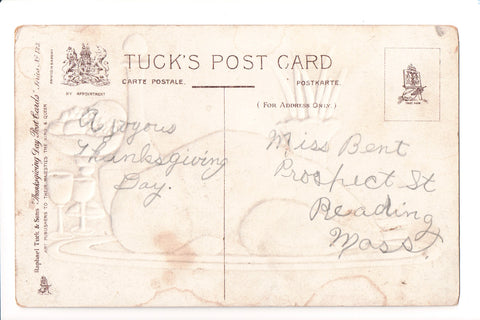 TUCK'S POST CARD
CARTE POSTALE.
POSTKARTE.
BY APPOINTMENT
( FOR ADDRESS ONLY. )
Raphael Tuck & Sons "Thanksgiving Day Post Cards" Series No 123
ART PUBLISHERS TO THEIR MAJESTIES THE KING & QUEEN
A Joyous
Thanksgiving
Day.
Miss Bent
Prospect St
Reading
Mass